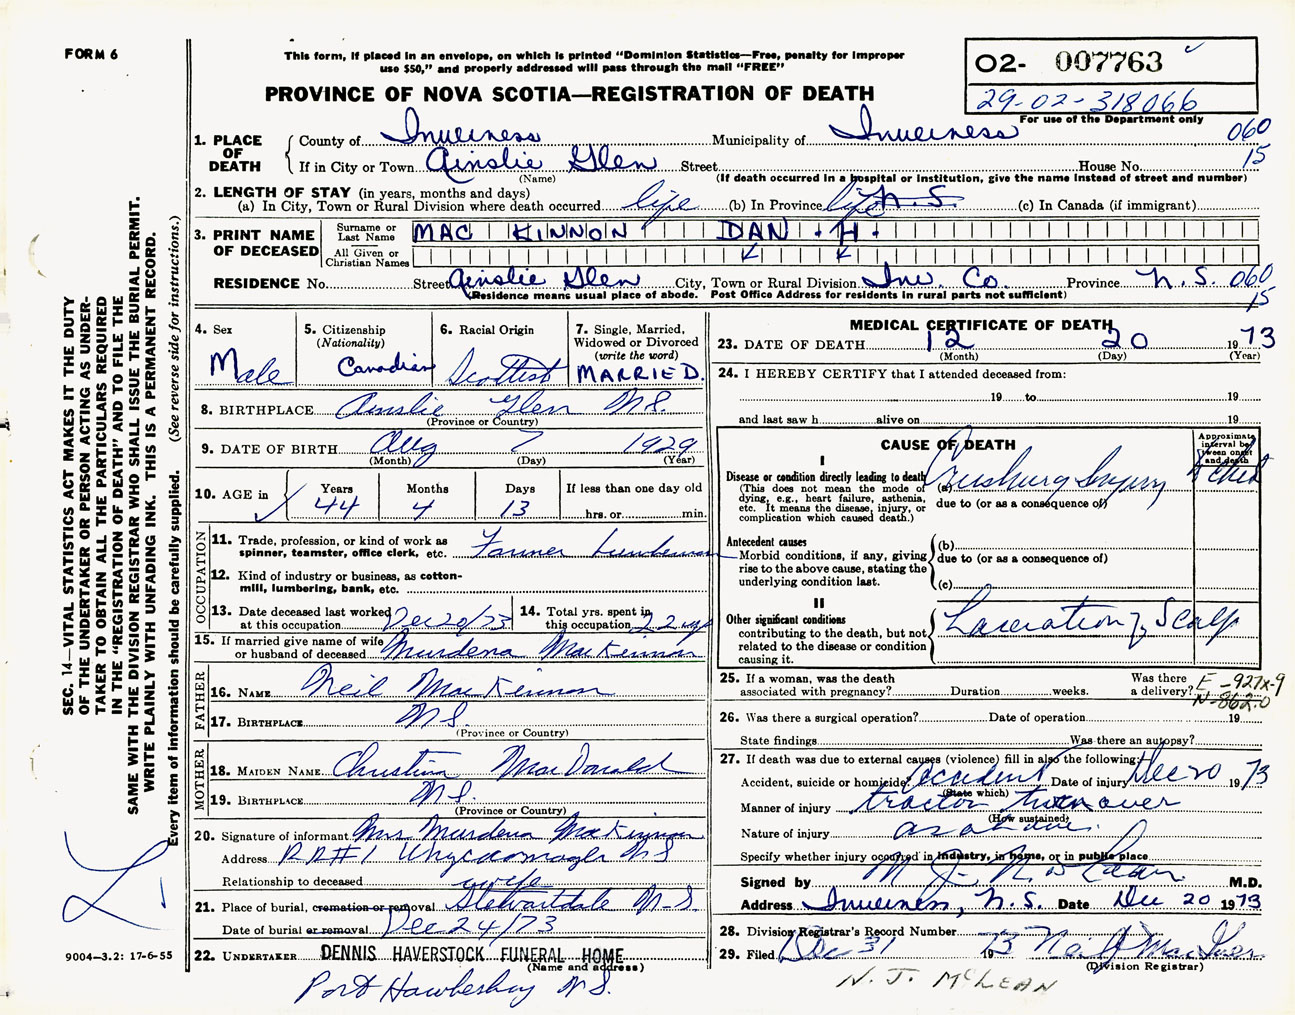 FORM 6
This form, if placed in an envelope, on which is printed "Dominion Statistics—Free, penalty for improper
use $50," and properly addressed will pass through the mail "FREE"
PROVINCE OF NOVA SCOTIA—REGISTRATION OF DEATH
O2- 007763
29-02-318066
For use of the Department only
1. PLACE OF DEATH
County of Inverness Municipality of Inverness 060
If in City or Town Ainslie Glen Street House No. 15
(Name) (If death occurred in a hospital or institution, give the name instead of street and number)
2. LENGTH OF STAY (in years, months and days)
(a) In City, Town or Rural Division where death occurred life (b) In Province life N.S. (c) In Canada (if immigrant)
3. PRINT NAME OF DECEASED
Surname or Last Name MAC KINNON DAN . H.
All Given or Christian Names
RESIDENCE No. Street Ainslie Glen City, Town or Rural Division Inv. Co. Province N.S. 060
(Residence means usual place of abode. Post Office Address for residents in rural parts not sufficient) 15
4. Sex
Male
5. Citizenship
(Nationality)
Canadian
6. Racial Origin
Scottish
7. Single, Married,
Widowed or Divorced
(write the word)
MARRIED.
8. BIRTHPLACE Ainslie Glen N.S.
(Province or Country)
9. DATE OF BIRTH Aug 7 1929
(Month) (Day) (Year)
10. AGE in
Years Months Days If less than one day old
44 4 13 hrs. or min.
OCCUPATION
11. Trade, profession, or kind of work as
spinner, teamster, office clerk, etc. Farmer Lumberman
12. Kind of industry or business, as cotton-
mill, lumbering, bank, etc.
13. Date deceased last worked
at this occupation Dec 20/73
14. Total yrs. spent in
this occupation 22 yrs
15. If married give name of wife
or husband of deceased Murdena MacKinnon
FATHER
16. NAME Neil MacKinnon
17. BIRTHPLACE N.S.
(Province or Country)
MOTHER
18. MAIDEN NAME Christina MacDonald
19. BIRTHPLACE N.S.
(Province or Country)
20. Signature of informant Mrs Murdena MacKinnon
Address RR#1 Whycocomagh NS
Relationship to deceased wife
21. Place of burial, cremation or removal Stewartdale N-S
Date of burial or removal Dec 24/73
22. UNDERTAKER DENNIS HAVERSTOCK FUNERAL HOME
(Name and address)
Port Hawkesbury N.S.
MEDICAL CERTIFICATE OF DEATH
23. DATE OF DEATH 12 20 1973
(Month) (Day) (Year)
24. I HEREBY CERTIFY that I attended deceased from:
19 to 19
and last saw h alive on 19
CAUSE OF DEATH
Approximate
interval be-
tween onset
and death
I
Disease or condition directly leading to death
(This does not mean the mode of
dying, e.g., heart failure, asthenia,
etc. It means the disease, injury, or
complication which caused death.)
(a) Crushing Injury
due to (or as a consequence of)
Antecedent causes
Morbid conditions, if any, giving
rise to the above cause, stating the
underlying condition last.
(b)
due to (or as a consequence of)
(c)
II
Other significant conditions
contributing to the death, but not
related to the disease or condition
causing it.
Laceration of Scalp
25. If a woman, was the death
associated with pregnancy? Duration weeks.
Was there
a delivery?
E-927x-9
N-862.0
26. Was there a surgical operation? Date of operation 19
State findings Was there an autopsy?
27. If death was due to external causes (violence) fill in also the following:
Accident, suicide or homicide? Accident Date of injury Dec 20 1973
(State which)
Manner of injury tractor turnover
(How sustained)
Nature of injury as above.
Specify whether injury occurred in industry, in home, or in public place
Signed by M.D.
Address Inverness, N.S. Date Dec 20 1973
28. Division Registrar's Record Number
29. Filed Dec 31 1973
(Division Registrar)
N. J. McLEAN
SEC. 14—VITAL STATISTICS ACT MAKES IT THE DUTY
OF THE UNDERTAKER OR PERSON ACTING AS UNDER-
TAKER TO OBTAIN ALL THE PARTICULARS REQUIRED
IN THE "REGISTRATION OF DEATH" AND TO FILE THE
SAME WITH THE DIVISION REGISTRAR WHO SHALL ISSUE THE BURIAL PERMIT.
WRITE PLAINLY WITH UNFADING INK. THIS IS A PERMANENT RECORD.
Every item of information should be carefully supplied. (See reverse side for instructions.)
9004—3.2: 17-6-55